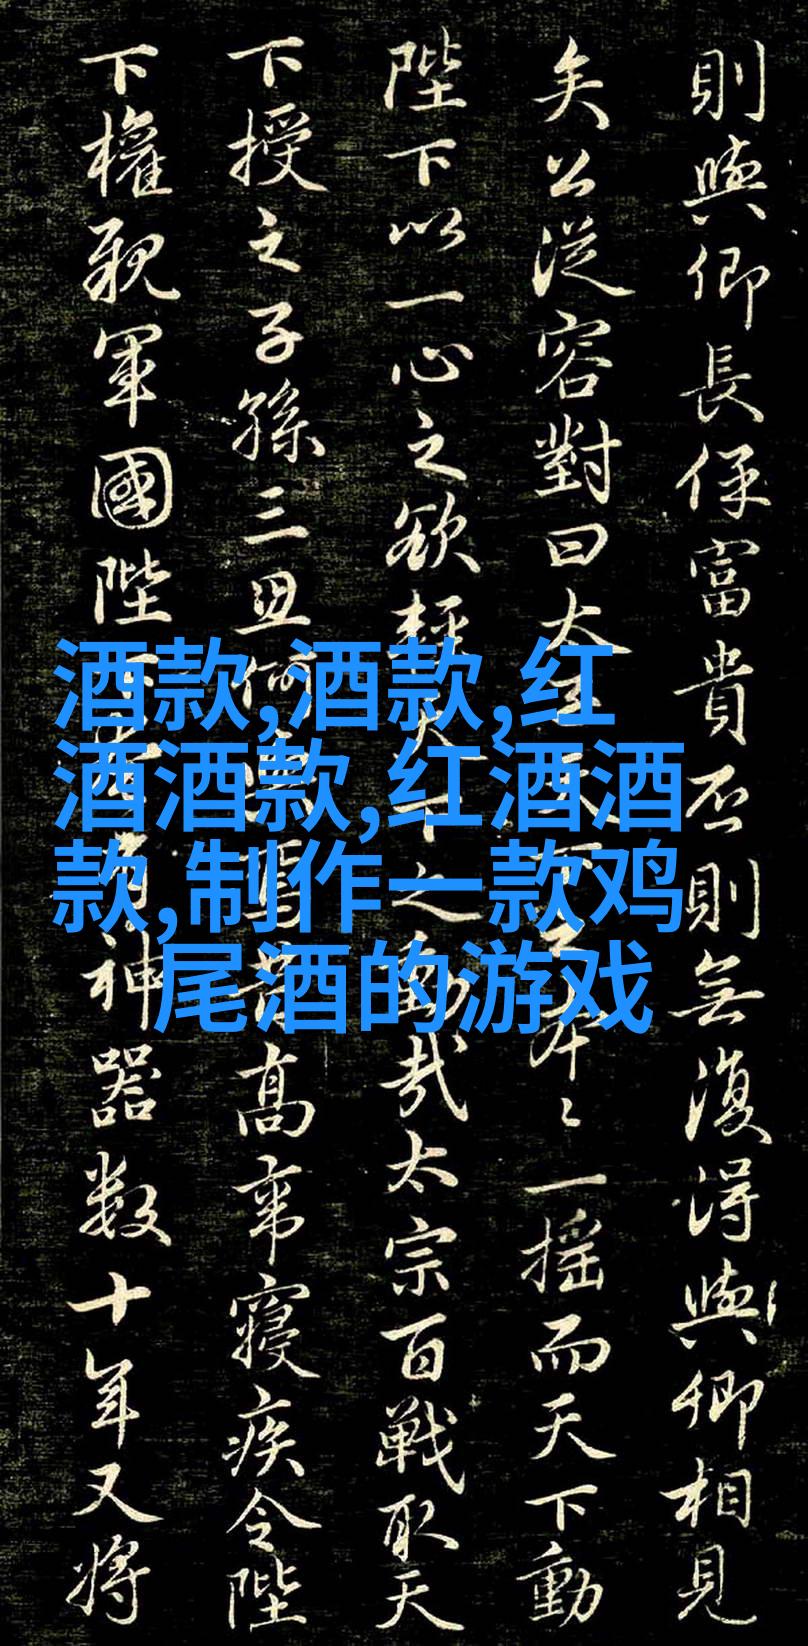 則與卿長保富貴否則無復得與卿相見
矣公從容對曰夫天下之本本一摇而天下動
陛下以一心之欲輕天下之動哉太宗百戰取天
下授之子孫三世何高宗寢疾令陛
下權親軍國陛下神器数十年又将
酒款,酒款,红
酒酒款,红酒酒
款,制作一款鸡
尾酒的游戏